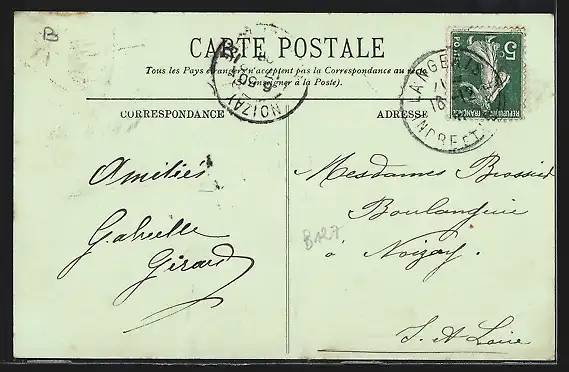 B
CARTE POSTALE
Tous les Pays étrangers n'acceptent pas la Correspondance au recto
(Se renseigner à la Poste).
CORRESPONDANCE
ADRESSE
5
REPUBLIQUE FRANÇAISE
LANGEAIS
INDRE ET
Amitiés
Gabrielle
Girard
Mesdames Brossier
Boulangerie
à Noizay.
I. et Loire
B127